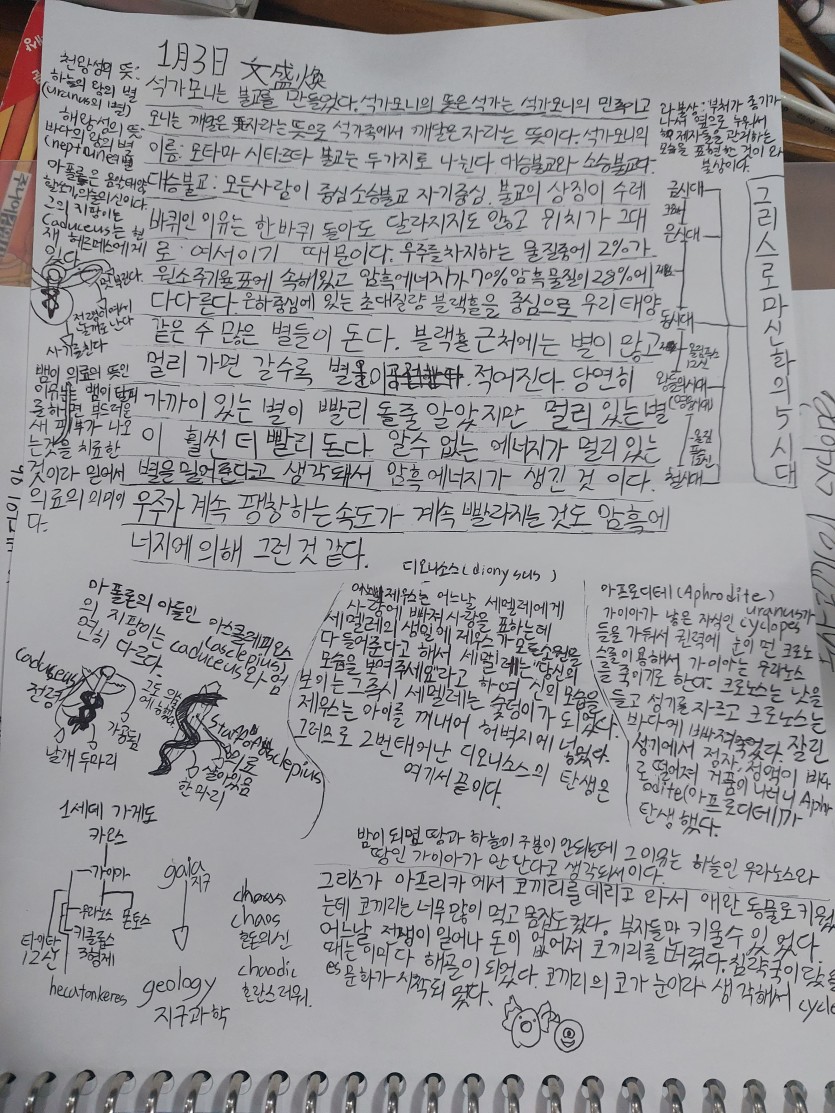 1月3日 文盛煥
천왕성의 뜻:
하늘의 왕의 별
(uranus의 별)
해왕성의 뜻:
바다의 왕의 별
(neptune의 별
아폴론은 음악,태양
그의 지팡이는
Caduceus는 현
재 헤르메스에게
있다
전령이여서
날개도 난다
사기를친다
뱀이 의료의 뜻인
이유는 뱀이 탈피
를 하면 부드러운
새 피부가 나오
는것을 치료한
것이라 믿어서
의료의 의미이
다.
석가모니는 불교를 만들었다. 석가모니의 뜻은 석가는 석가모니의 민족이고
모니는 깨달은 자라는 뜻으로 석가족에서 깨달은 자라는 뜻이다. 석가모니의
이름: 오타마 시타르타 불교는 두가지로 나뉜다 대승불교와 소승불교다.
대승불교: 모든사람이 중심 소승불교 자기중심. 불교의 상징이 수레
바퀴인 이유는 한바퀴 돌아도 달라지지도 않고 위치가 그대
로 여서이기 때문이다. 우주를차지하는 물질중에 2%가
원소주기율표에 속해있고 암흑에너지가 70% 암흑물질이 28%에
다다른다. 은하중심에 있는 초대질량 블랙홀을 중심으로 우리 태양
같은 수 많은 별들이 돈다. 블랙홀 근처에는 별이 많고
멀리 가면 갈수록 별이 적어진다. 당연히
가까이 있는 별이 빨리 돌줄 알았지만 멀리 있는별
이 훨씬 더 빨리 돈다. 알수 없는 에너지가 멀리 있는
별을 밀어준다고 생각돼서 암흑에너지가 생긴것 이다.
우주가 계속 팽창하는 속도가 계속 빨라지는 것도 암흑에
너지에 의해 그런 것 같다.
와불상: 부처가 종기가
나서 옆으로 누워서
제자들을 관저하는
모습을 표현한 것이 와
불상이다.
그리스로마신화의 5시대
금시대
은시대
동시대
올림푸스
12신
영웅의시대
(영웅시대)
철시대
아폴론의 아들인 아스클레피오스
의 지팡이는 (asclepius)
caduceus와 엄
연히 다르다.
caduceus
전령
가공됨
날개 두마리
Staff of asclepius
의료
살아있음
한마리
디오니소스(dionysus)
제우스는 어느날 세멜레에게
사랑에 빠져 사랑을 표하는데
세멜레의 생일에 제우스가 모든소원을
다 들어준다고 해서 세멜레는 "당신의
모습을 보여주세요"라고 하여 신의 모습을
보이는 그즉시 세멜레는 숯덩이가 되었다.
제우스는 아이를 꺼내어 허벅지에 넣었다.
그러므로 2번태어난 디오니소스의 탄생은
여기서 끝이다.
아프로디테(Aphrodite)
가이아가 낳은 자식인 cyclopes uranus가
들을 가둬서 권력에 눈이 먼 크로노
스를 이용해서 가이아는 우라노스
를 죽이기도 한다. 크로노스는 낫을
들고 성기를 자르고 크로노스는
바다에 빠져 잘린
성기에서 정자, 정액이 바다
로 떨어져 거품이 나더니 Aphr
odite(아프로디테)가
탄생했다.
1세대 가계도
카오스
가이아
우라노스 폰토스
키클롭스
3형제
티탄
12신
hecatonkeres
gaia
지구
geology
지구과학
chaos
chaos
혼돈의신
chaodic
혼란스러워.
밤이 되면 땅과 하늘이 구분이 안되는데 그이유는 하늘인 우라노스와
땅인 가이아가 만난다고 생각되서이다.
그리스가 아프리카에서 코끼리를 데리고 와서 애완 동물로키웠
는데 코끼리는 너무많이 먹고 몸집도컸다. 부자들만 키울수 있었다.
어느날 전쟁이 일어나 돈이 없어져 코끼리를 버렸다. 침략국이 왔을
때는 이미 다 해골이 되었다. 코끼리의 코가 눈이라 생각해서 cyclo
es문화가 시작되었다.